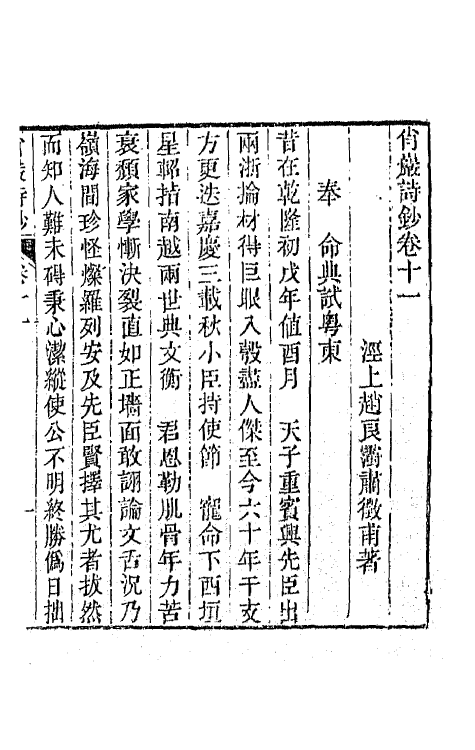 肖巖詩鈔卷十一
涇上趙良澍肅徵甫著
奉 命典試粵東
昔在乾隆初戊年值酉月 天子重賓興先臣出
兩浙掄材得巨眼入彀盡人傑至今六十年干支
方更迭嘉慶三載秋小臣持使節 寵命下西垣
星軺指南越兩世典文衡 君恩勒肌骨年力苦
衰頹家學慚決裂直如正墻面敢詡論文舌況乃
嶺海間珍怪燦羅列安及先臣賢擇其尤者拔然
而知人難未碍秉心潔縱使公不明終勝僞日拙
肖巖詩鈔 卷十一 一